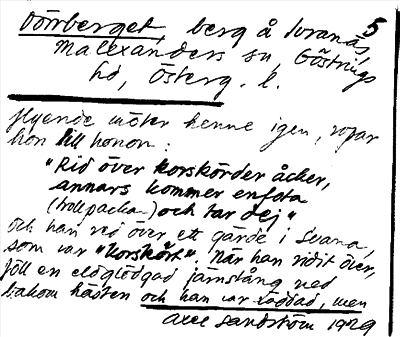 Dörrberget, berg å Svanäs, 5
Malexanders sn, Göstrings
hd, Österg. l.
flyende möter henne igen, ropar
hon till honom:
"Rid över korskörder åcker,
annars kommer enfota
(trollpacka-) och tar dej"
och han red över ett gärde i Svana,
som var "korskört". När han ridit över,
föll en elöglödgad järnstång ned
bakom hästen och han var räddad, men
Axel Sandström 1929